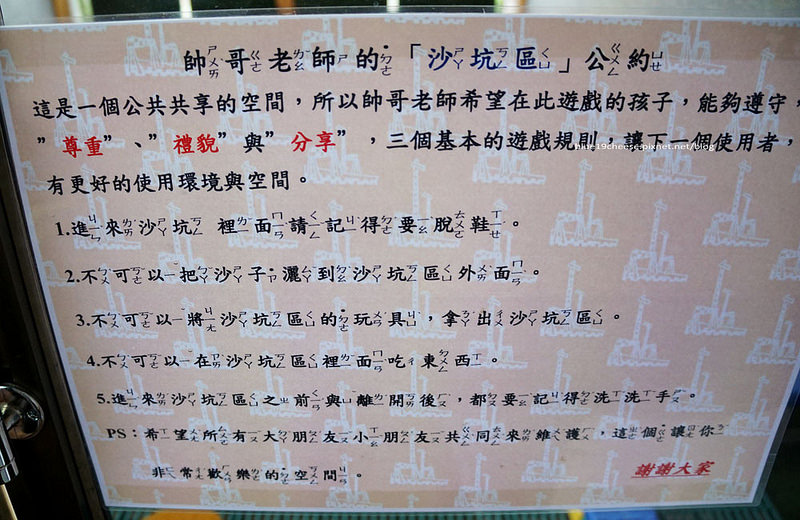 帥哥老師的「沙坑區」公約
這是一個公共共享的空間，所以帥哥老師希望在此遊戲的孩子，能夠遵守，
”尊重”、”禮貌”與”分享”，三個基本的遊戲規則，讓下一個使用者，
有更好的使用環境與空間。
1.進來沙坑 裡面請記得要脫鞋。
2.不可以把沙子灑到沙坑區外面。
3.不可以將沙坑區的玩具，拿出沙坑區。
4.不可以在沙坑區裡面吃東西。
5.進來沙坑區之前與離開後，都要記得洗洗手。
PS：希望所有大朋友小朋友共同來維護，這個讓你
非常歡樂的空間。
謝謝大家